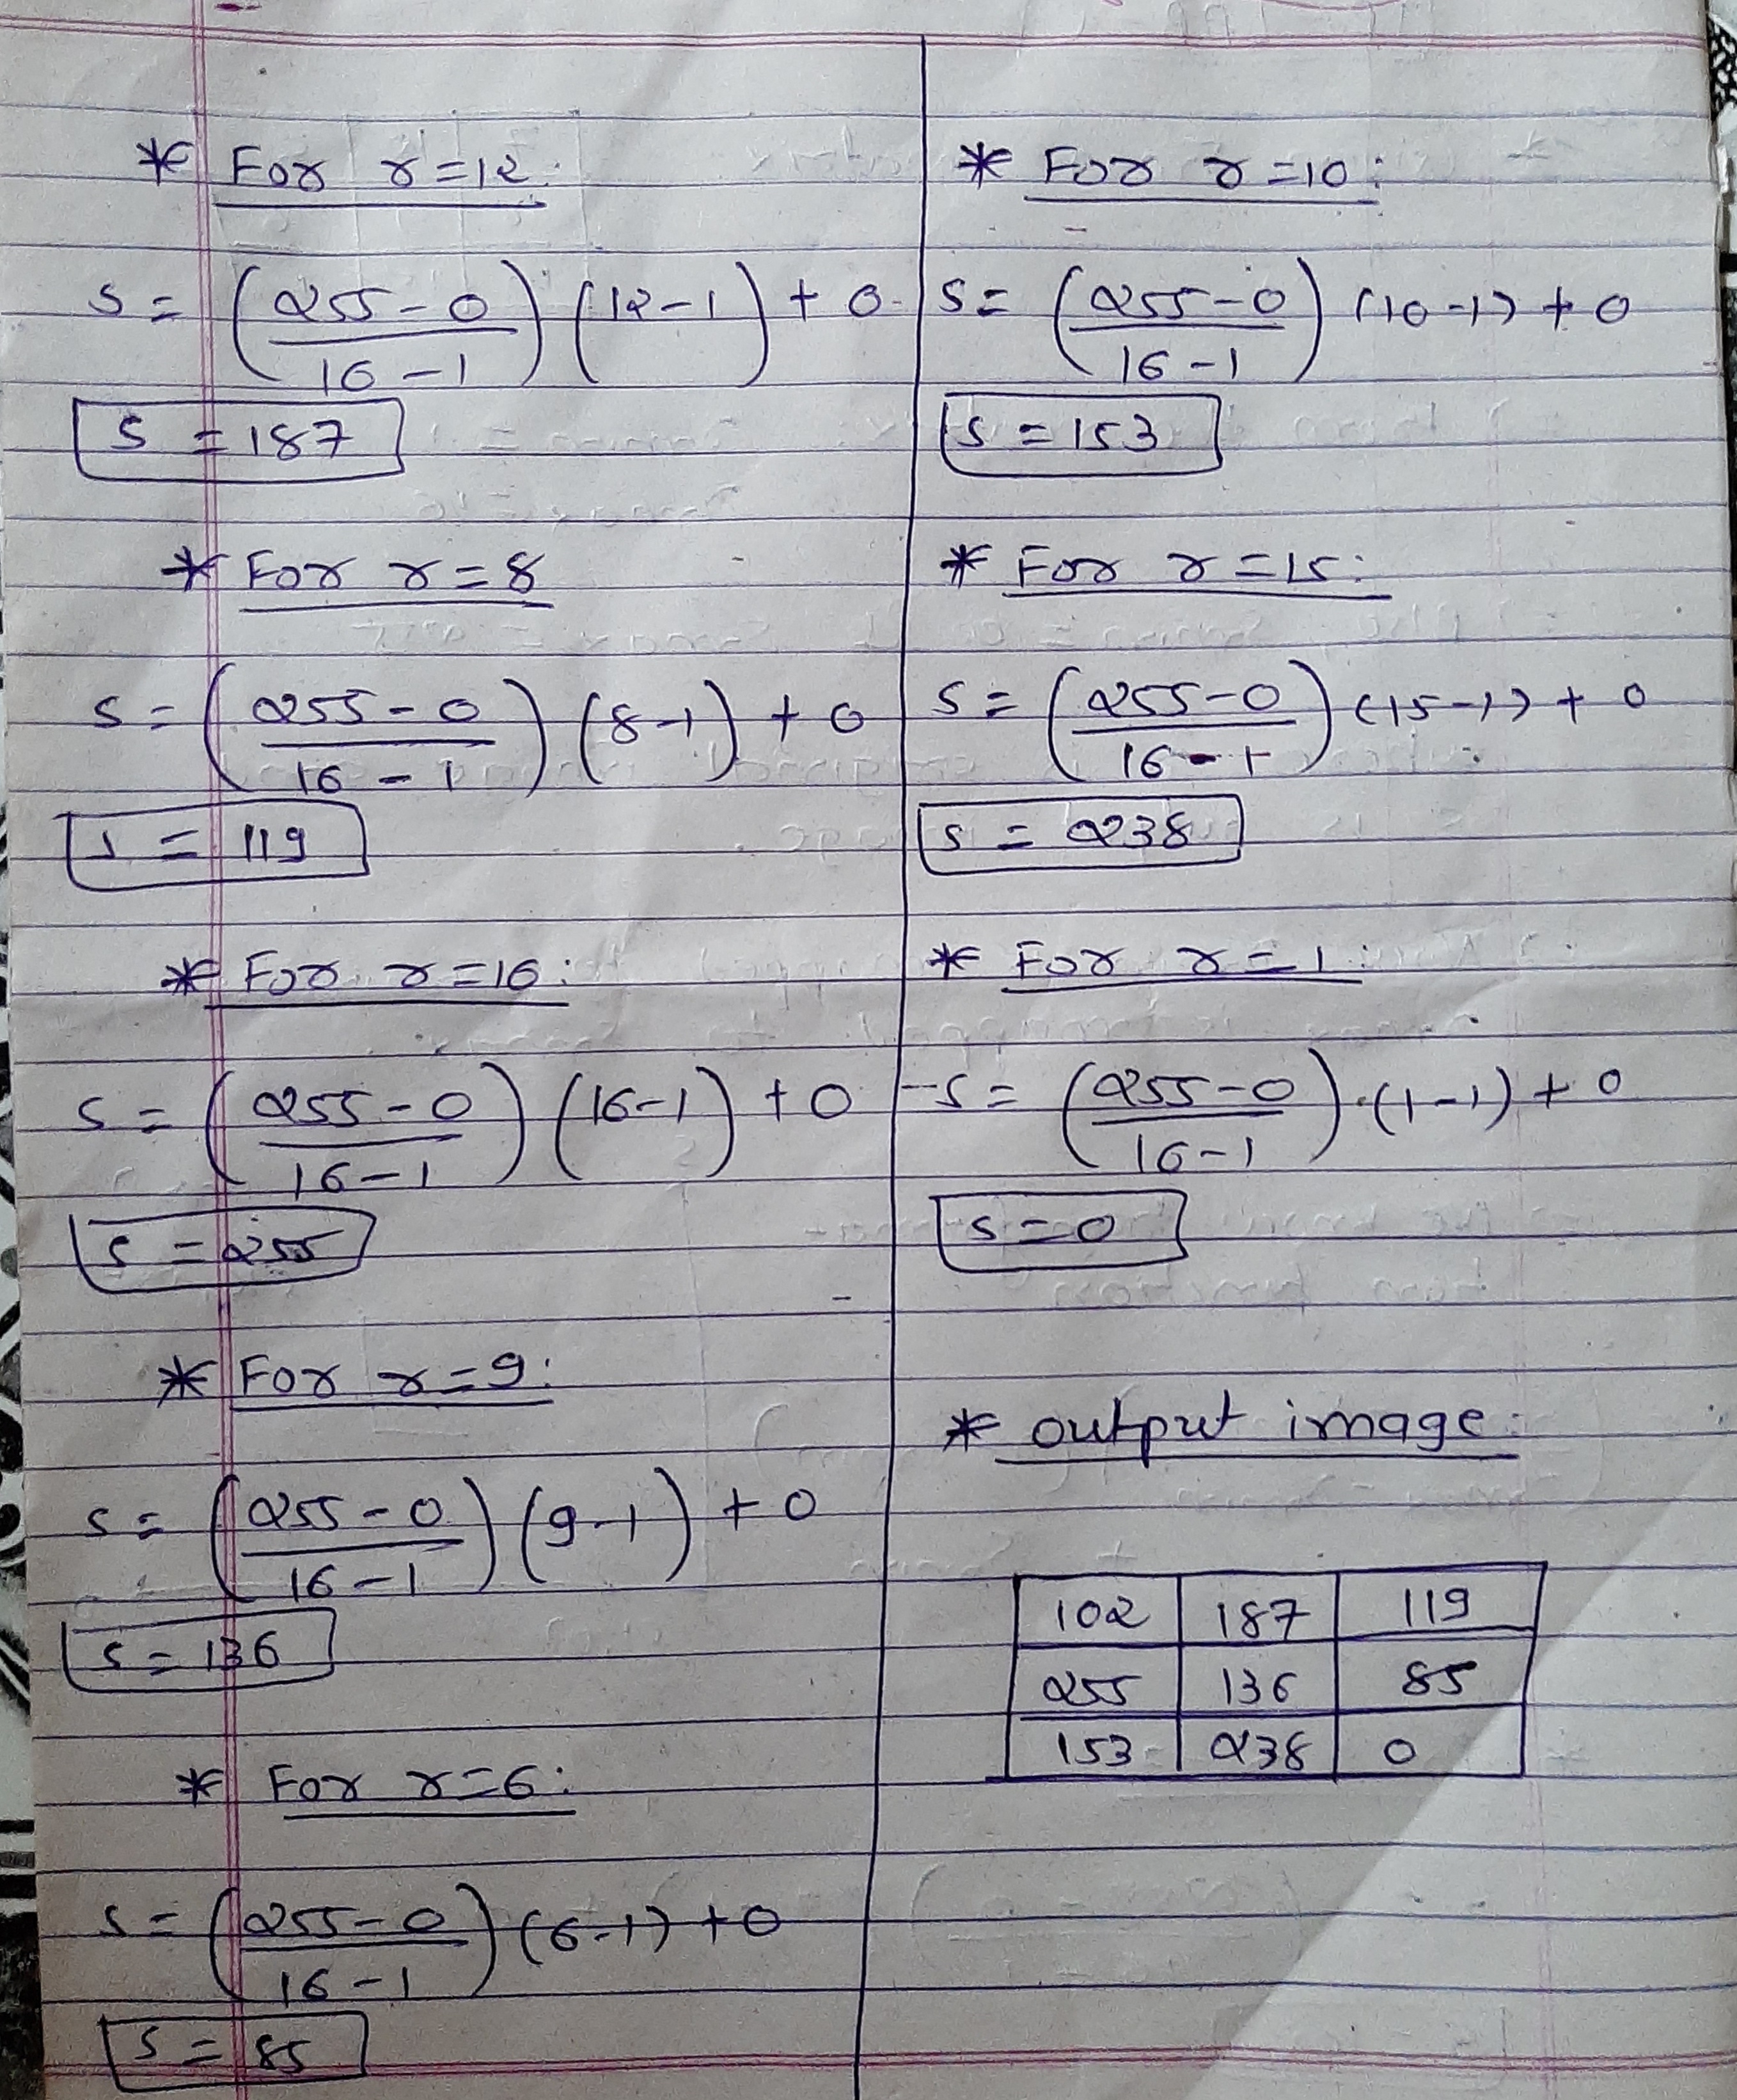 * For r=12:
s = (255-0 / 16-1) (12-1) + 0
s = 187
* For r=8
s = (255-0 / 16-1) (8-1) + 0
s = 119
* For r=16:
s = (255-0 / 16-1) (16-1) + 0
s = 255
* For r=9:
s = (255-0 / 16-1) (9-1) + 0
s = 136
* For r=6:
s = (255-0 / 16-1) (6-1) + 0
s = 85
* For r=10:
s = (255-0 / 16-1) (10-1) + 0
s = 153
* For r=15:
s = (255-0 / 16-1) (15-1) + 0
s = 238
* For r=1:
s = (255-0 / 16-1) (1-1) + 0
s=0
* output image:
102 187 119
255 136 85
153 238 0